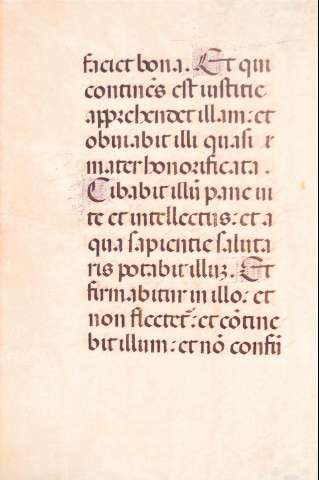 faciet bona. Et qui
continēs est iustitie
apprehendet illam: et
obuiabit illi quasi
mater honorificata.
Cibabit illū pane ui
te et intellectus: et a
qua sapientie saluta
ris potabit illuʒ. Et
firmabitur in illo: et
non flectet᷑: et cōtine
bit illum: et nō confū